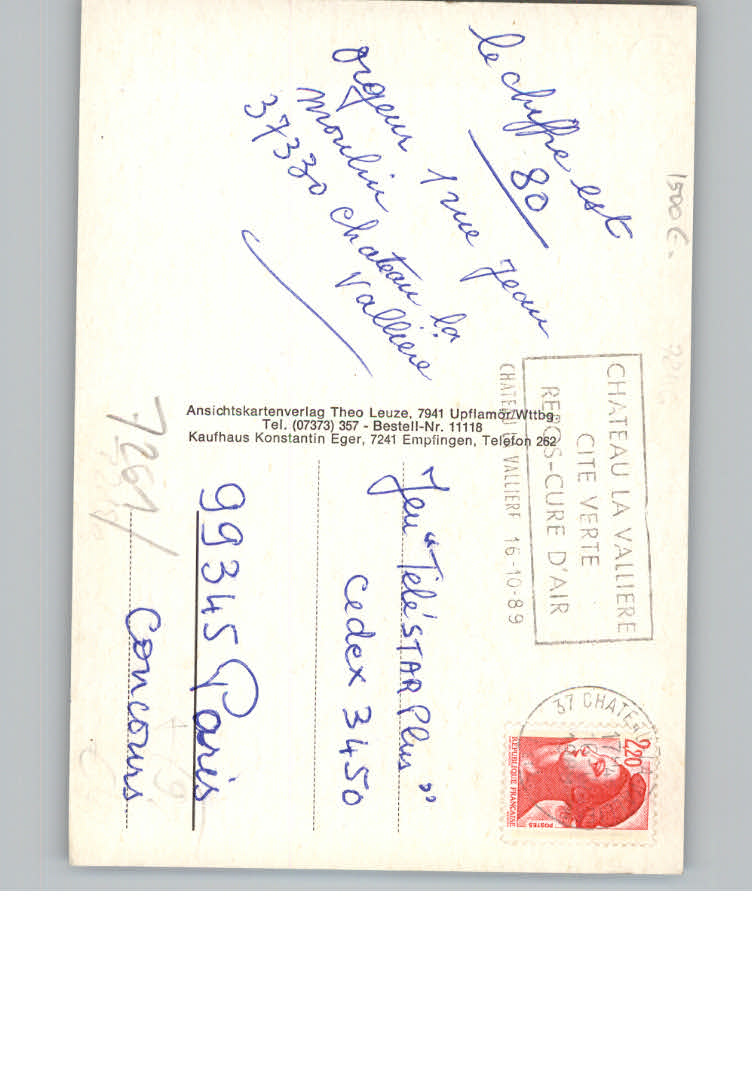 le chiffre est
80
orgeur 1 rue Jean
moulin
37330 chateau la
Vallière
Ansichtskartenverlag Theo Leuze, 7941 Upflamör/Wttbg.
Tel. (07373) 357 - Bestell-Nr. 11118
Kaufhaus Konstantin Eger, 7241 Empfingen, Telefon 262
CHATEAU LA VALLIERE
CITE VERTE
REPOS-CURE D'AIR
CHATEAU LA VALLIERE 16-10-89
37 CHATEAU
2,20
REPUBLIQUE FRANÇAISE
POSTES
Jeu "TéléSTAR Plus"
Cedex 3450
99345 Paris
Concours
7261